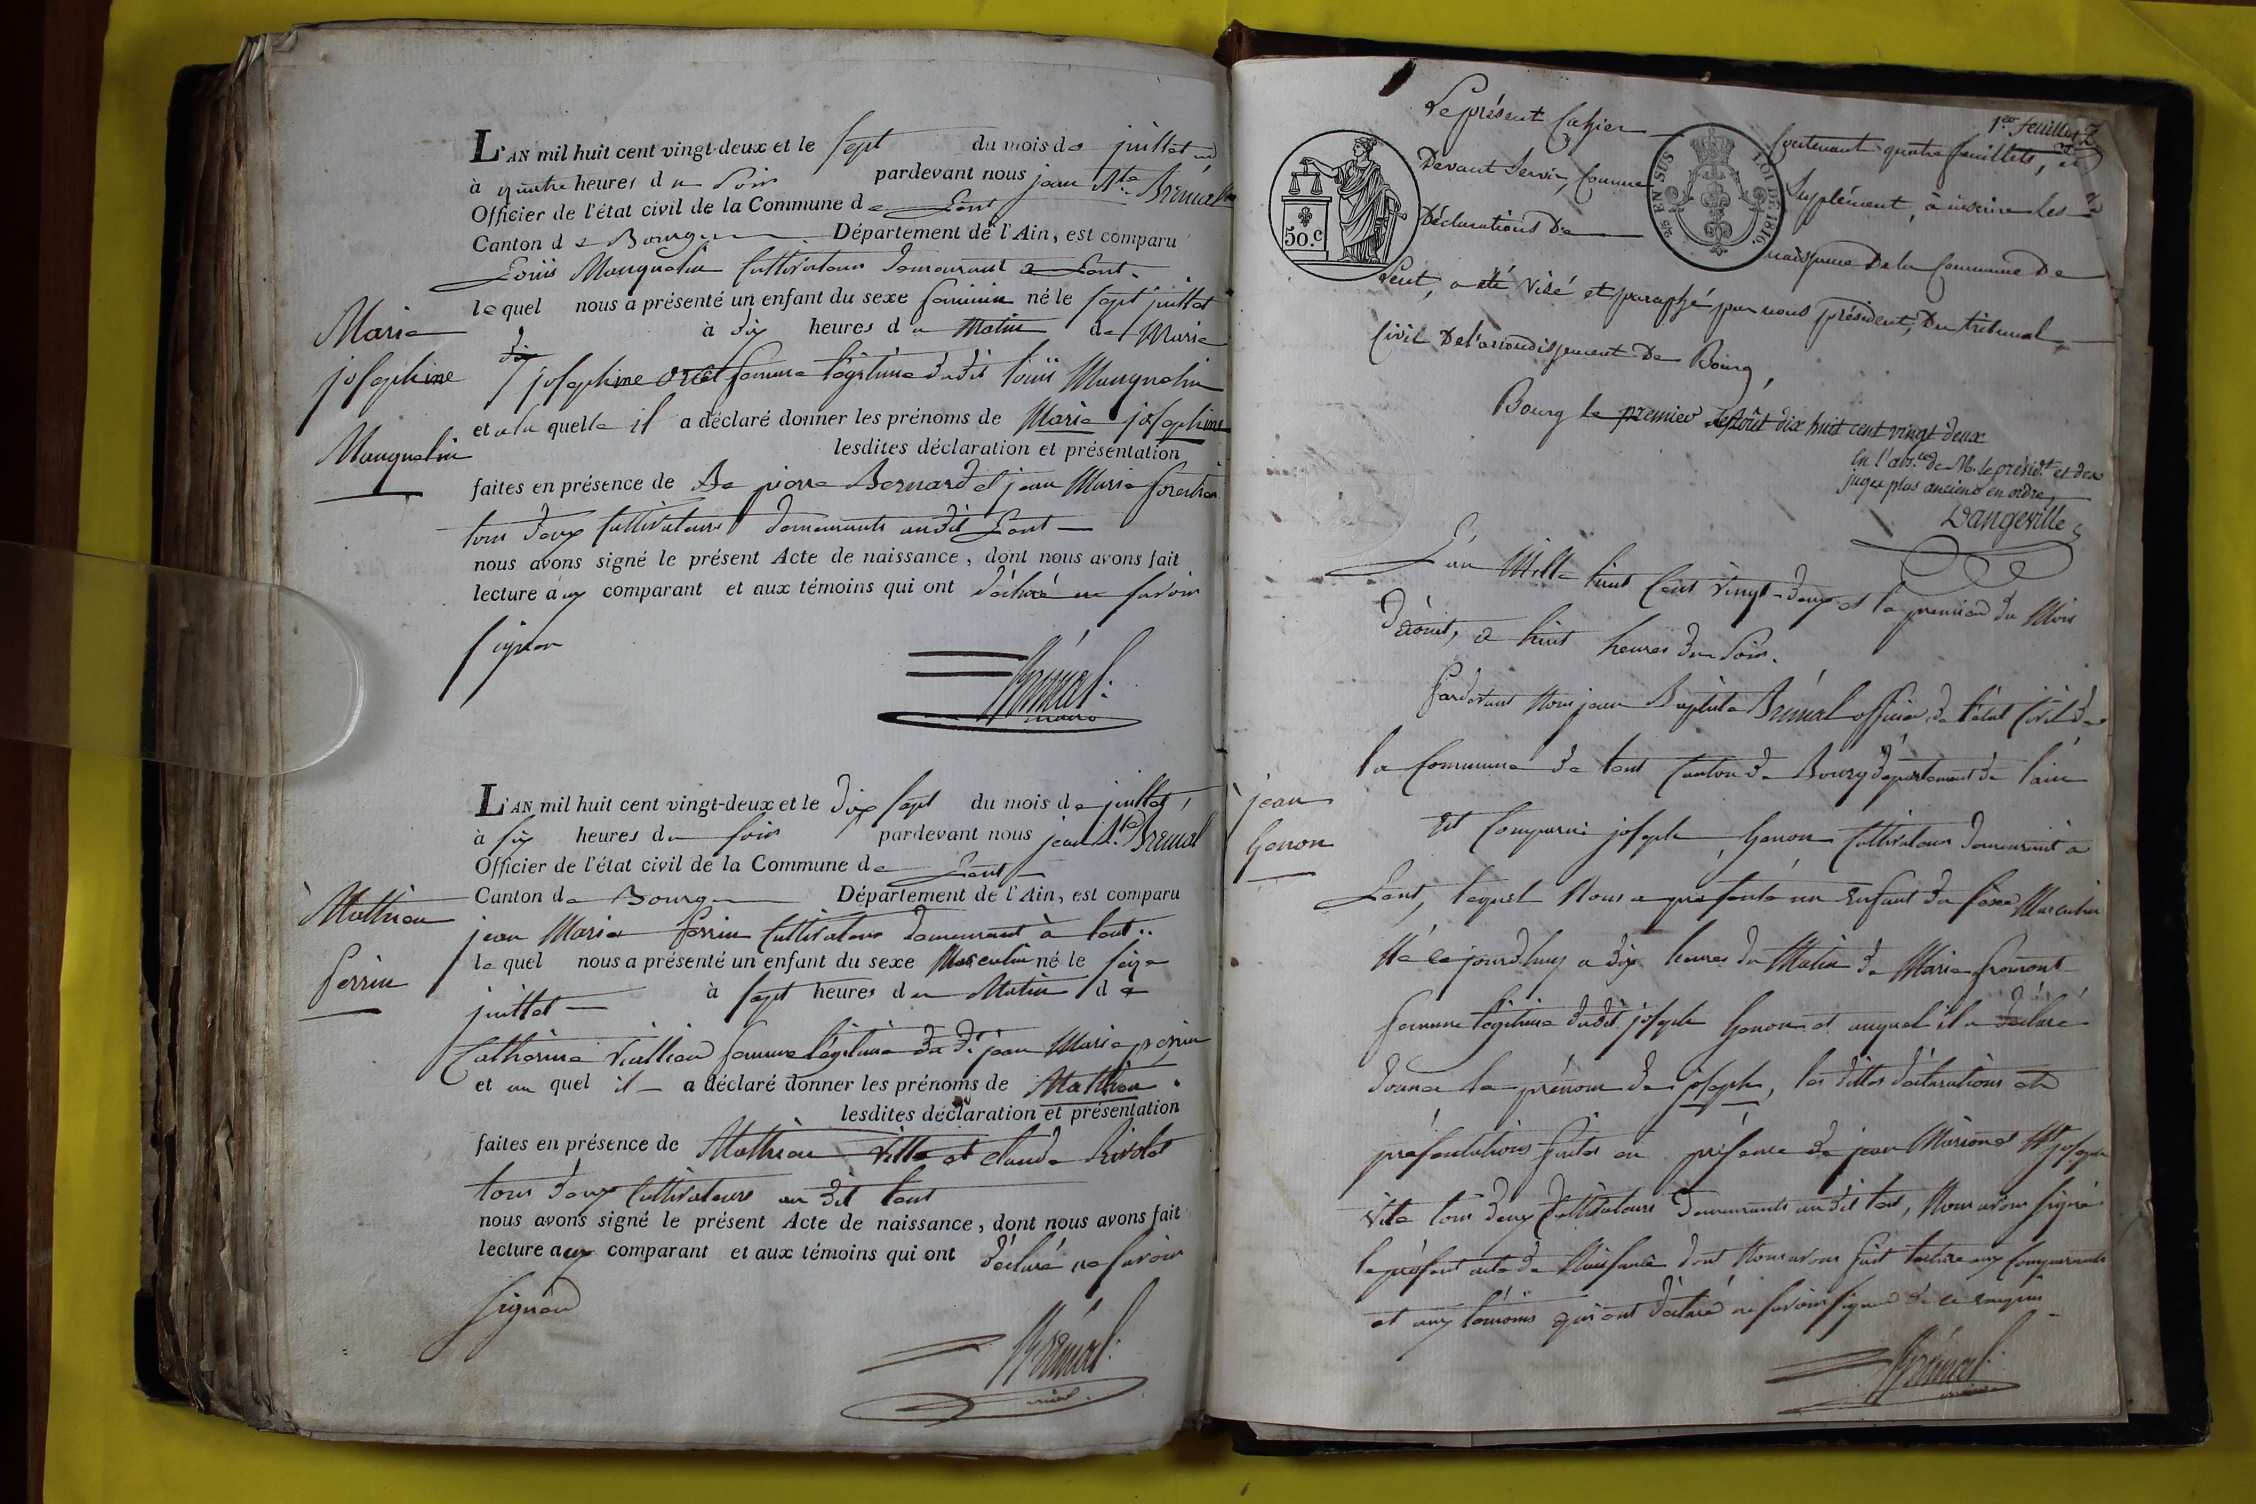 L'AN mil huit cent vingt-deux et le sept du mois de juillet
à quatre heures du soir pardevant nous jean Bte Brémal
Officier de l'état civil de la Commune de Lent
Canton de Bourg Département de l'Ain, est comparu
Louis Mauguelin Cultivateur demeurant a Lent.
lequel nous a présenté un enfant du sexe féminin né le sept juillet
à dix heures du Matin de Marie
josephine femme légitime dudit louis Mauguelin
et a la quelle il a déclaré donner les prénoms de Marie josephine
lesdites déclaration et présentation
faites en présence de De pierre Bernard et jean Marie
tous deux Cultivateurs demeurants audit Lent
nous avons signé le présent Acte de naissance, dont nous avons fait
lecture aux comparant et aux témoins qui ont déclaré ne savoir
signer
Brémal
maire
Marie
josephine
Mauguelin
L'AN mil huit cent vingt-deux et le dix sept du mois de juillet,
à six heures du soir pardevant nous jean Bte Brémal
Officier de l'état civil de la Commune de Lent
Canton de Bourg Département de l'Ain, est comparu
jean Marie perrin Cultivateur demeurant à lent
lequel nous a présenté un enfant du sexe Masculin né le seize
juillet à sept heures du Matin de
Catherine femme légitime du dt jean Marie perrin
et au quel il a déclaré donner les prénoms de Mathieu.
lesdites déclaration et présentation
faites en présence de Mathieu Ville et Claude Rivolet
tous deux Cultivateurs au dit lent
nous avons signé le présent Acte de naissance, dont nous avons fait
lecture aux comparant et aux témoins qui ont déclaré ne savoir
signer
Brémal
Mathieu
perrin
1er feuillet
Le présent Cahier Contenant quatre feuillets, et
Devant Servir, Comme Supplément, à inscrire les
Déclarations De naissance De la Commune De
Lent, a été visé et paraphé par nous président, Du tribunal
Civil De l'arrondissement De Bourg,
50.c
25 EN SUS
LOI DE 1816.
Bourg le premier août dix huit cent vingt deux
En l'abs.ce de M. le présid.t et des
juges plus anciens en ordre,
Dangeville
L'an Mille huit Cent vingt-deux et le premier du Mois
d'aout, a huit heures du soir.
Pardevant Nous jean Baptiste Brémal officier de l'état Civil de
la Commune de lent Canton de Bourg département de l'ain
est Comparu joseph Genon Cultivateur demeurant a
Lent, lequel Nous a présenté un Enfant du sexe Masculin
Né ce jourdhuy a dix heures du Matin de Marie froment
femme légitime dudit joseph Genon et auquel il a déclaré
donner le prénom de joseph, les dittes déclarations et
présentations faites en présence de jean Marion et joseph
Vite tous deux Cultivateurs demeurants audit lent, Nous avons signé
le présent acte de Naissance dont Nous avons fait lecture aux Comparants
et aux témoins qui ont déclaré ne savoir signer de ce requis
Brémal
jean
Genon